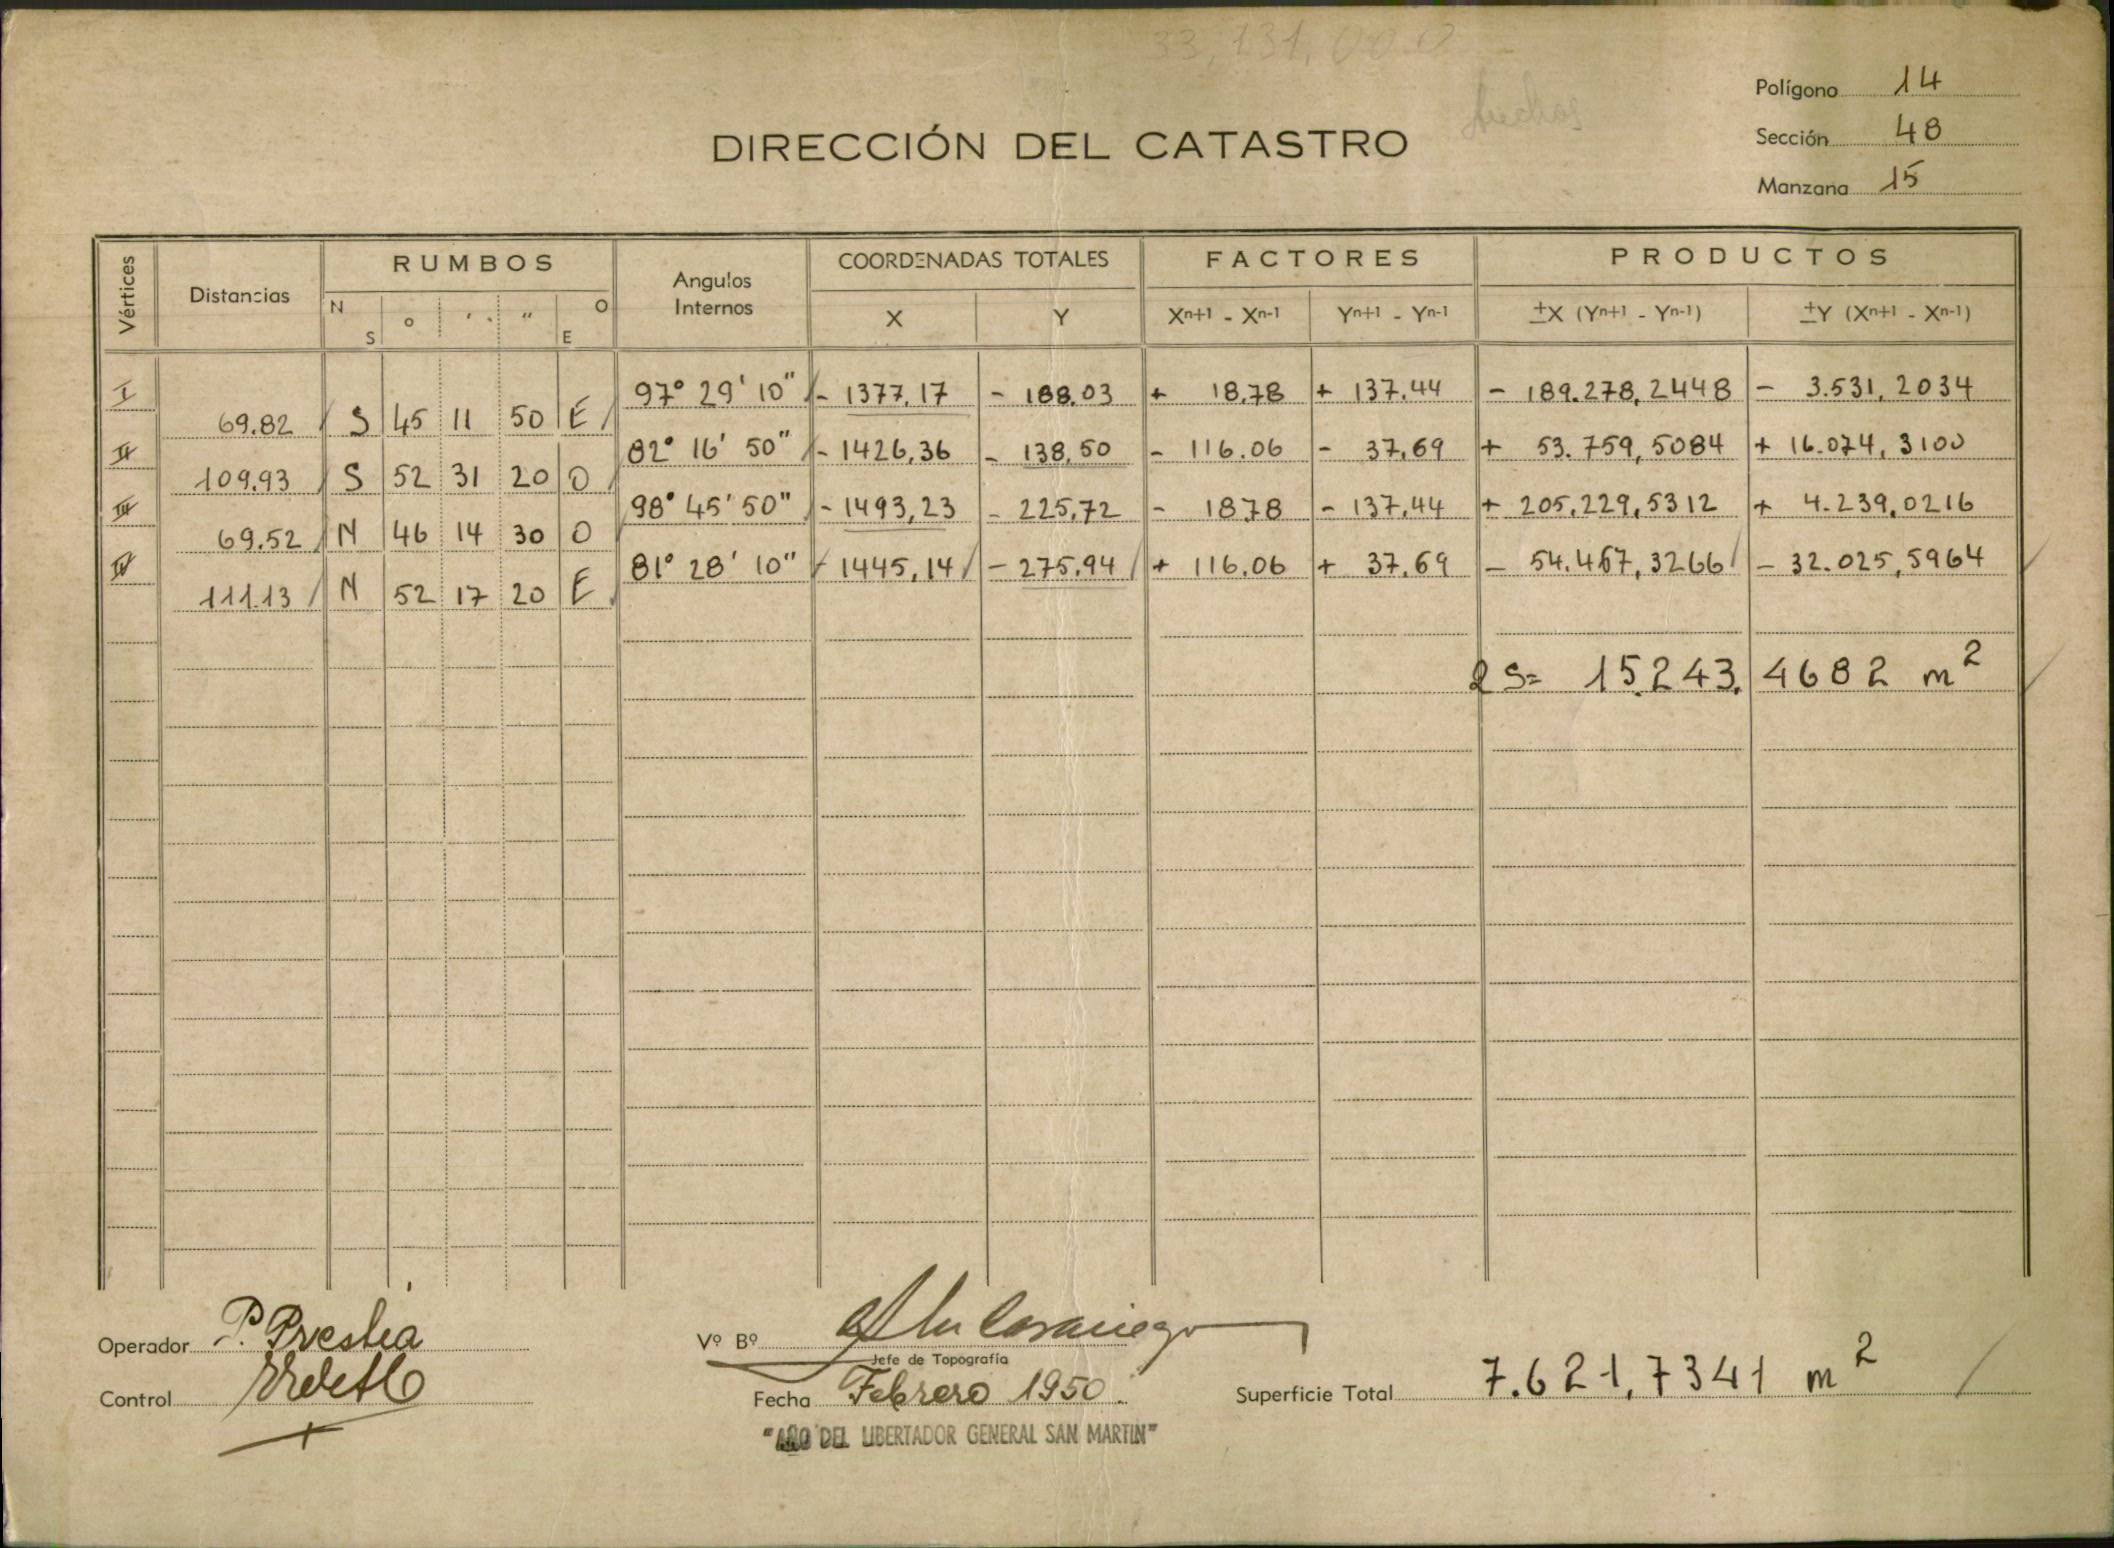 33,131,00.0
Polígono 14
Sección 48
DIRECCIÓN DEL CATASTRO
Manzana 15
Vértices Distancias RUMBOS Angulos Internos COORDENADAS TOTALES FACTORES PRODUCTOS
N S ° ' " O E X Y Xn+1 - Xn-1 Yn+1 - Yn-1 ±X (Yn+1 - Yn-1) ±Y (Xn+1 - Xn-1)
I 97° 29' 10" - 1377,17 - 188.03 + 18,78 + 137.44 - 189.278,2448 - 3.531,2034
69.82 S 45 11 50 E
II 82° 16' 50" - 1426,36 - 138,50 - 116.06 - 37,69 + 53.759,5084 + 16.074,3100
109.93 S 52 31 20 O
III 98° 45' 50" - 1493,23 - 225,72 - 18,78 - 137,44 + 205.229,5312 + 4.239,0216
69.52 N 46 14 30 O
IV 81° 28' 10" - 1445,14 - 275,94 + 116.06 + 37,69 - 54.467,3266 - 32.025,5964
111.13 N 52 17 20 E
2 S = 15.243,4682 m²
Operador P. Prestia
Vº Bº
Jefe de Topografía
Control
Fecha Febrero 1950.
Superficie Total 7.621,7341 m²
"AÑO DEL LIBERTADOR GENERAL SAN MARTIN"